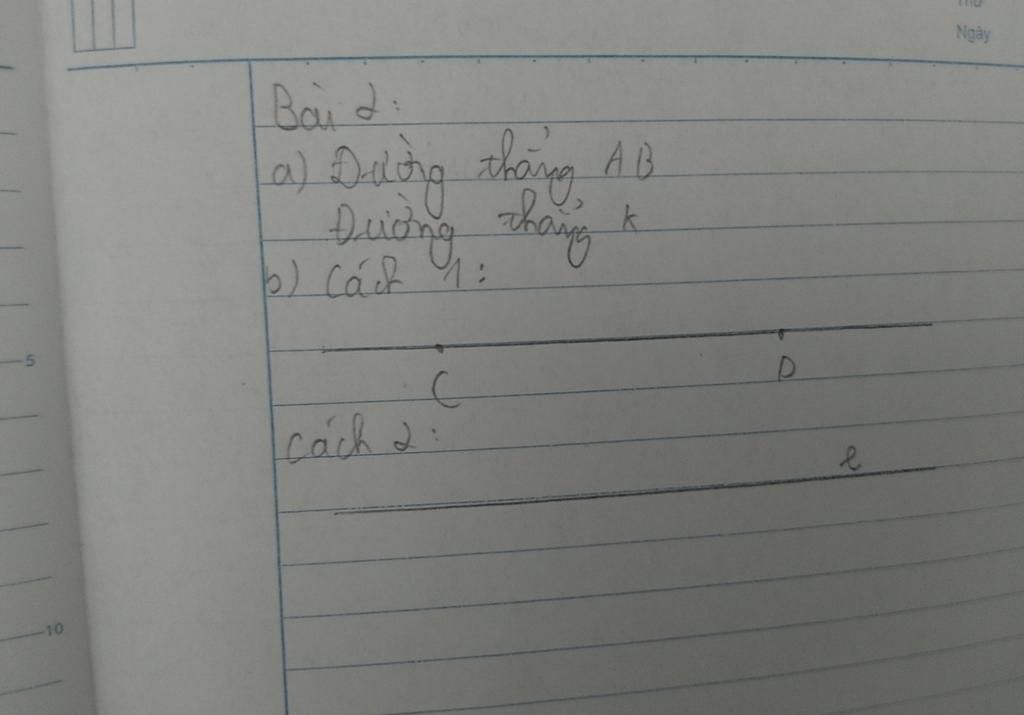 Ngày
Bài 2:
a) Đường thẳng AB
Đường thẳng k
b) Cách 1:
5
C D
cách 2:
e
10